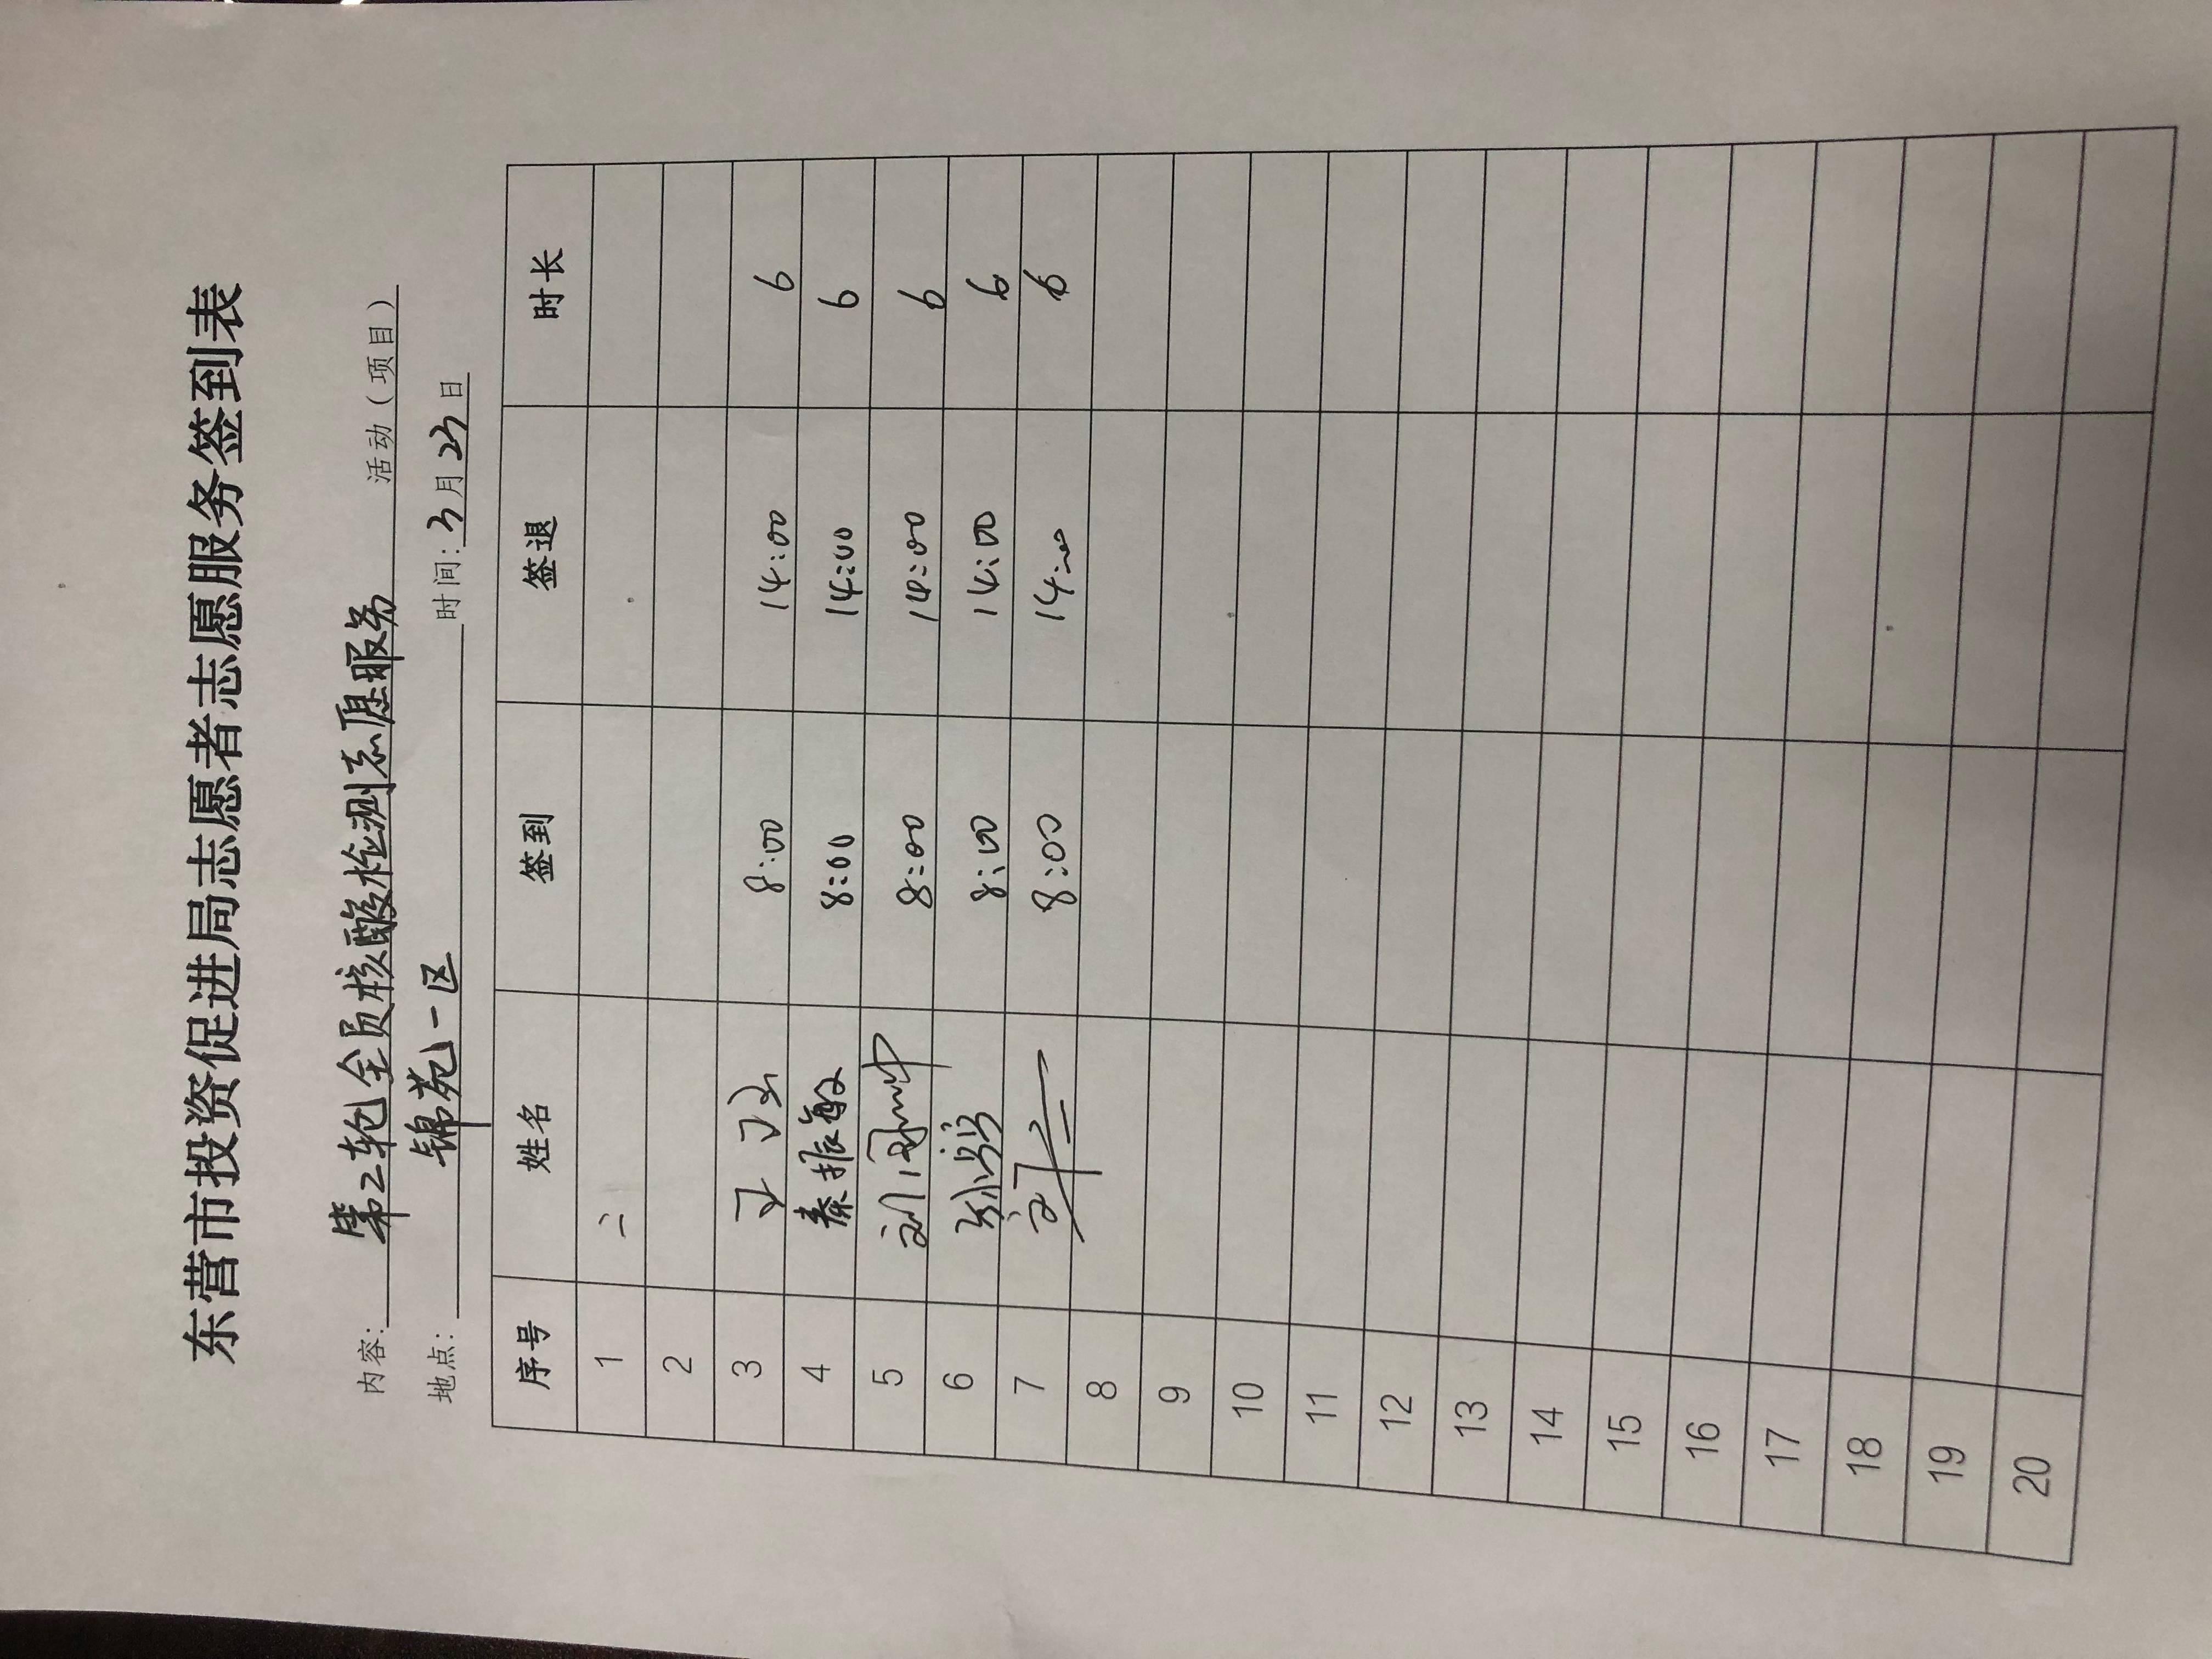 东营市投资促进局志愿者志愿服务签到表
内容: 第2轮全员核酸检测志愿服务 活动(项目)
地点: 锦苑一区 时间: 3月23日
序号 姓名 签到 签退 时长
1
2
3 8:00 14:00 6
4 秦振敏 8:00 14:00 6
5 8:00 14:00 6
6 8:00 14:00 6
7 8:00 14:00 6
8
9
10
11
12
13
14
15
16
17
18
19
20